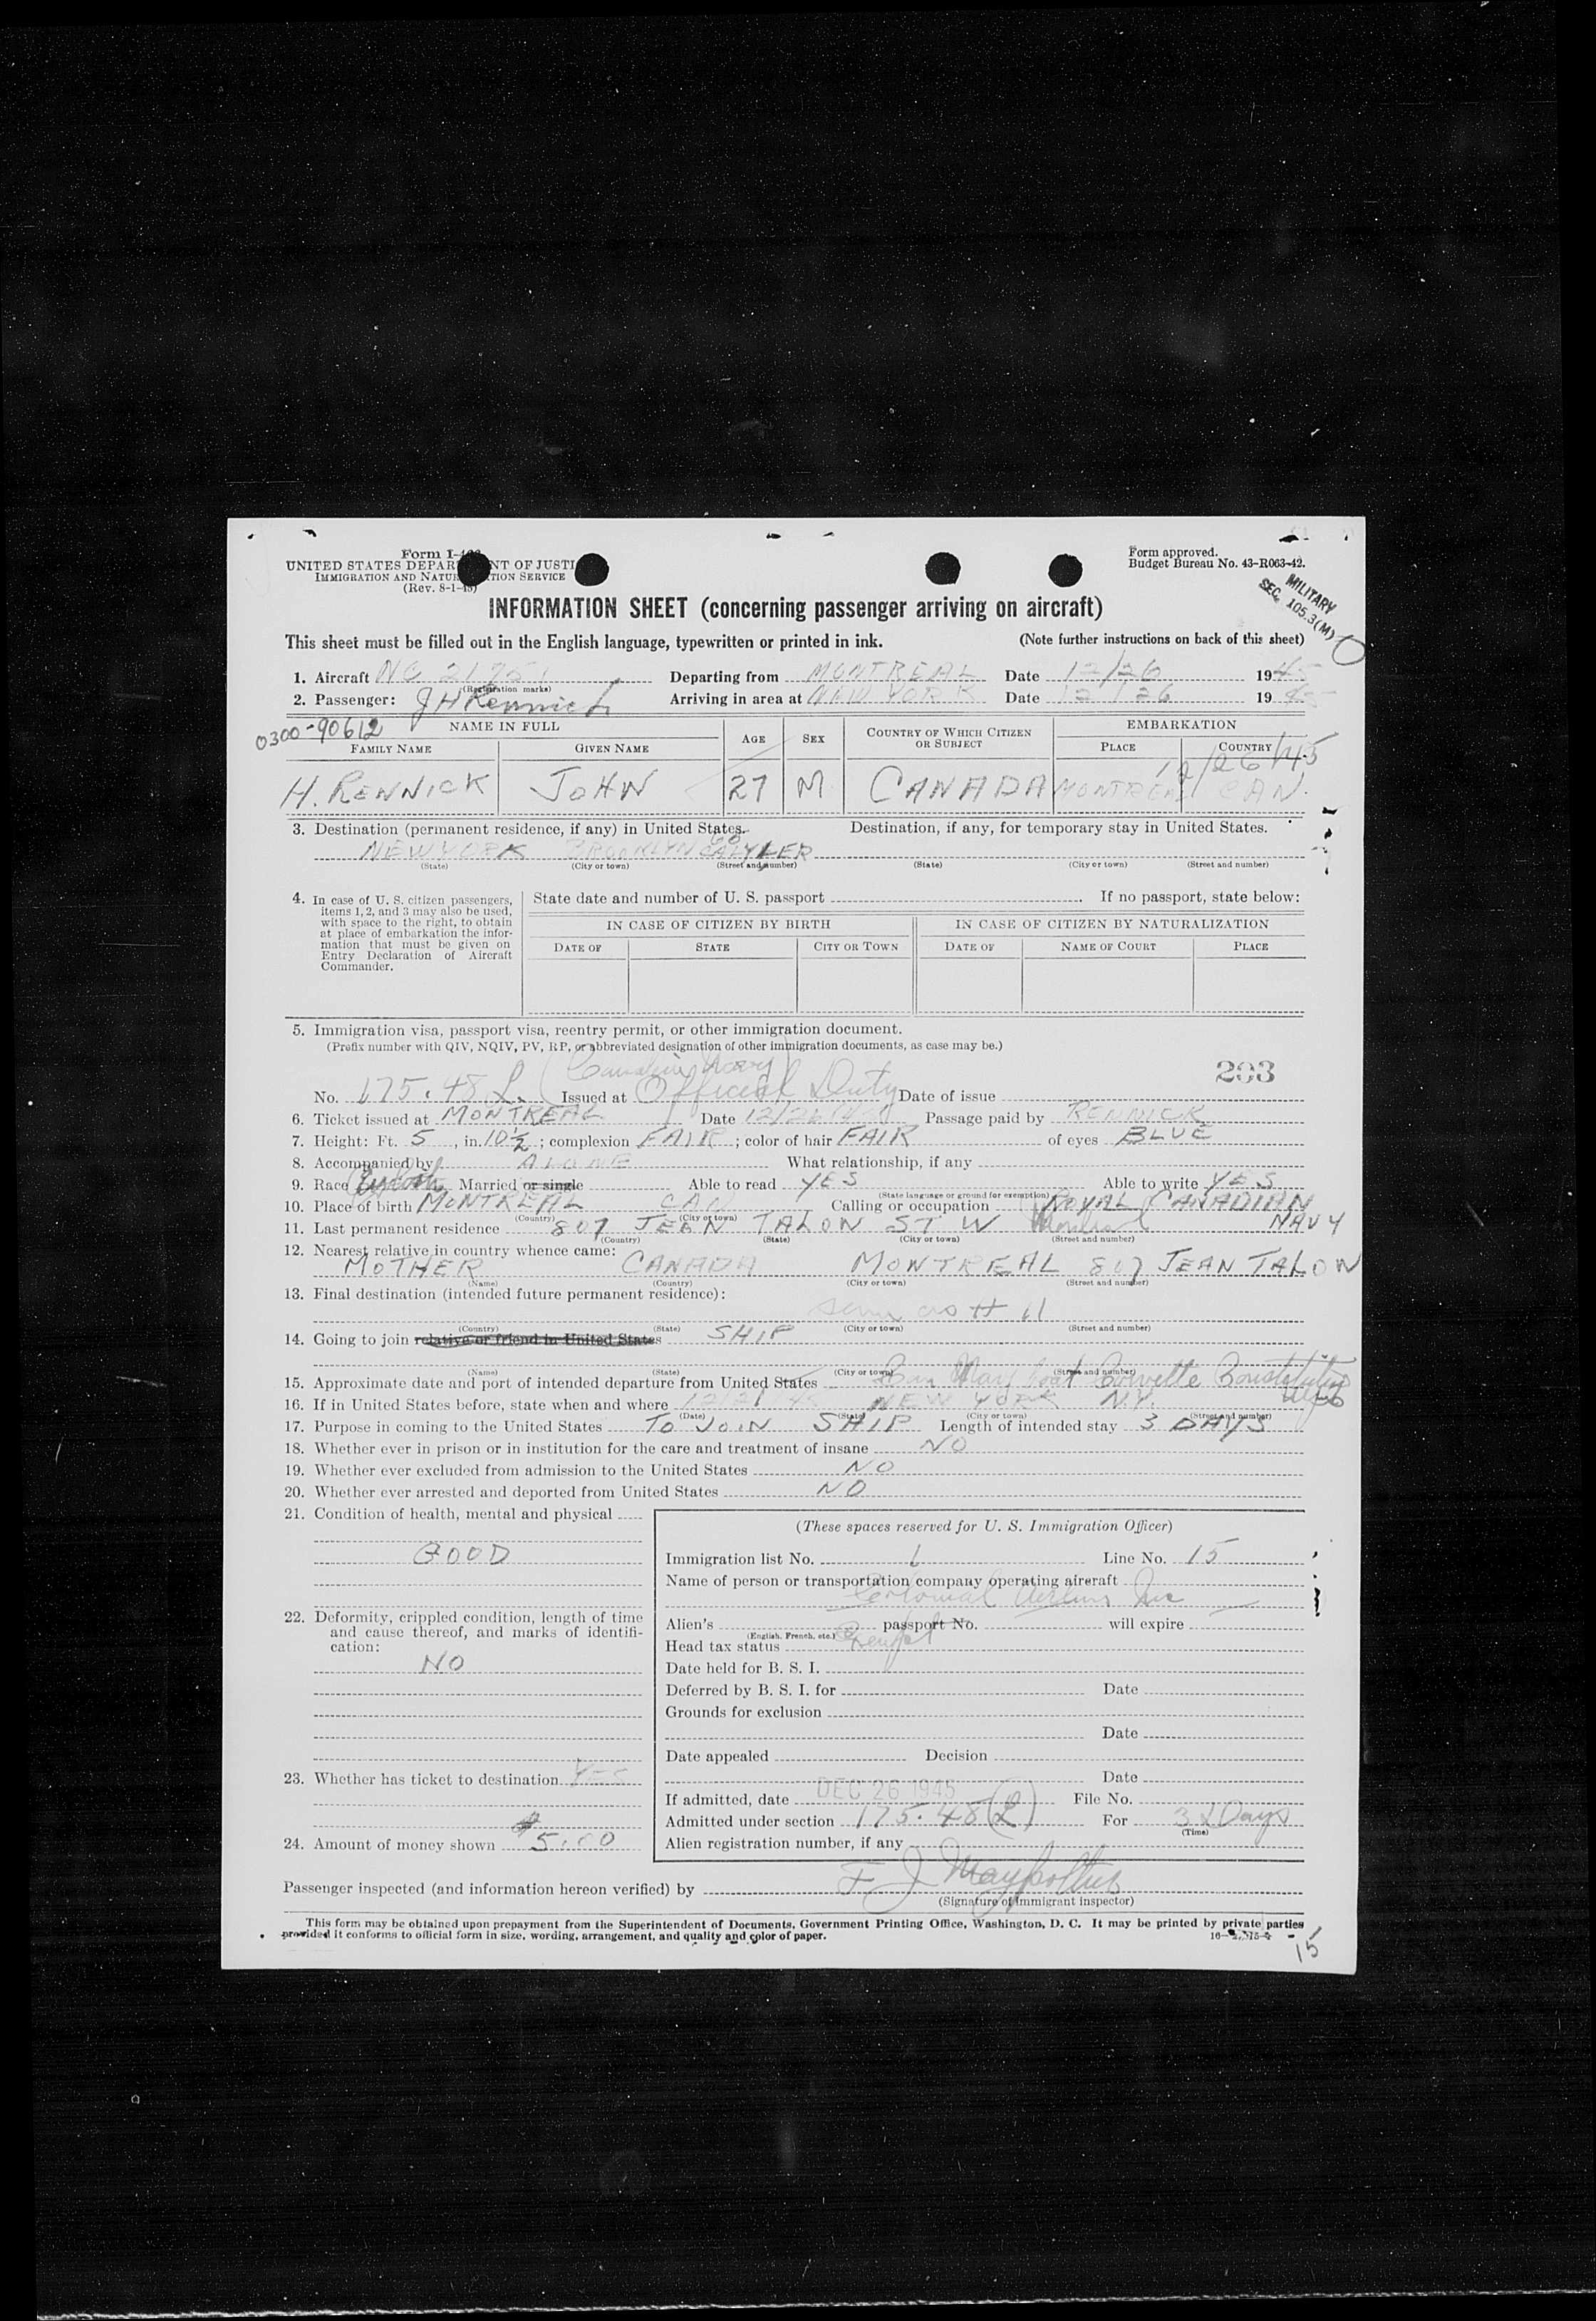 Form I-
UNITED STATES DEPAR NT OF JUSTI
IMMIGRATION AND NATU TION SERVICE
(Rev. 8-1-45)
Form approved.
Budget Bureau No. 43-R063-42.
MILITARY
SEC. 105.3(M)
INFORMATION SHEET (concerning passenger arriving on aircraft)
This sheet must be filled out in the English language, typewritten or printed in ink. (Note further instructions on back of this sheet)
1. Aircraft NC 21751 Departing from MONTREAL Date 12/26 1945
(Registration marks)
2. Passenger: J H Rennick Arriving in area at NEW YORK Date 12/26 1945
0300-90612
NAME IN FULL AGE SEX COUNTRY OF WHICH CITIZEN OR SUBJECT EMBARKATION
FAMILY NAME GIVEN NAME PLACE COUNTRY
12/26/45
H. RENNICK JOHN 27 M CANADA MONTREAL CAN.
3. Destination (permanent residence, if any) in United States. Destination, if any, for temporary stay in United States.
NEW YORK BROOKLYN
(State) (City or town) (Street and number) (State) (City or town) (Street and number)
4. In case of U. S. citizen passengers, items 1, 2, and 3 may also be used, with space to the right, to obtain at place of embarkation the information that must be given on Entry Declaration of Aircraft Commander.
State date and number of U. S. passport If no passport, state below:
IN CASE OF CITIZEN BY BIRTH IN CASE OF CITIZEN BY NATURALIZATION
DATE OF STATE CITY OR TOWN DATE OF NAME OF COURT PLACE
5. Immigration visa, passport visa, reentry permit, or other immigration document.
(Prefix number with QIV, NQIV, PV, RP, or abbreviated designation of other immigration documents, as case may be.)
(Canadian Navy) 203
No. 175.48 L. Issued at Official Duty Date of issue
6. Ticket issued at MONTREAL Date 12/26/45 Passage paid by RENNICK
7. Height: Ft. 5, in. 10½; complexion FAIR; color of hair FAIR of eyes BLUE
8. Accompanied by ALONE What relationship, if any
9. Race English Married or single Able to read YES Able to write YES
(State language or ground for exemption)
10. Place of birth MONTREAL CAN Calling or occupation ROYAL CANADIAN NAVY
(Country) (City or town)
11. Last permanent residence 807 JEAN TALON ST W Montreal
(Country) (State) (City or town) (Street and number)
12. Nearest relative in country whence came:
MOTHER CANADA MONTREAL 807 JEAN TALON
(Name) (Country) (City or town) (Street and number)
13. Final destination (intended future permanent residence):
same as # 11
(Country) (State) (City or town) (Street and number)
14. Going to join relative or friend in United States SHIP
(Name) (State) (City or town) (Street and number)
15. Approximate date and port of intended departure from United States
16. If in United States before, state when and where 12/21 45 NEW YORK N.Y.
(Date) (State) (City or town) (Street and number)
17. Purpose in coming to the United States TO JOIN SHIP Length of intended stay 3 DAYS
18. Whether ever in prison or in institution for the care and treatment of insane NO
19. Whether ever excluded from admission to the United States NO
20. Whether ever arrested and deported from United States NO
21. Condition of health, mental and physical
GOOD
22. Deformity, crippled condition, length of time and cause thereof, and marks of identification:
NO
23. Whether has ticket to destination Yes
24. Amount of money shown $5.00
(These spaces reserved for U. S. Immigration Officer)
Immigration list No. 1 Line No. 15
Name of person or transportation company operating aircraft
Colonial Airlines Inc
Alien's passport No. will expire
(English, French, etc.)
Head tax status Exempt
Date held for B. S. I.
Deferred by B. S. I. for Date
Grounds for exclusion
Date
Date appealed Decision
Date
If admitted, date DEC 26 1945 File No.
Admitted under section 175.48(L) For 3 Days
(Time)
Alien registration number, if any
Passenger inspected (and information hereon verified) by F J
(Signature of Immigrant inspector)
This form may be obtained upon prepayment from the Superintendent of Documents, Government Printing Office, Washington, D. C. It may be printed by private parties
provided it conforms to official form in size, wording, arrangement, and quality and color of paper.
15